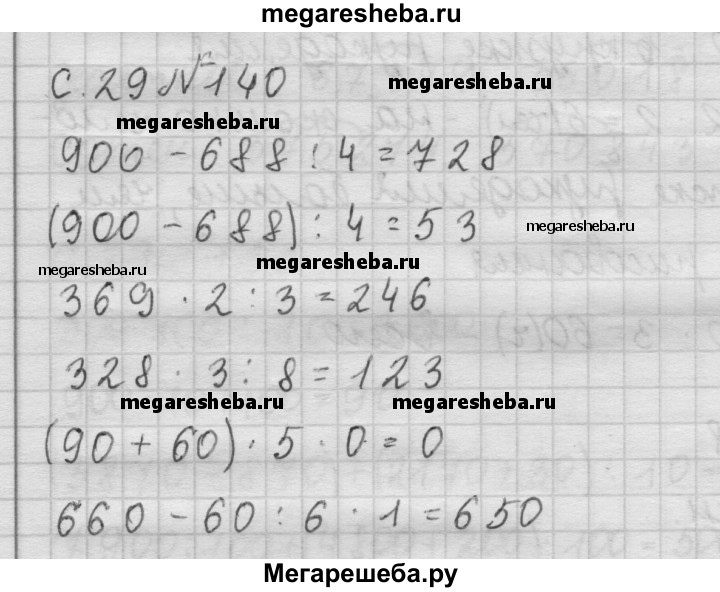 megaresheba.ru
с. 29 № 140
megaresheba.ru
megaresheba.ru
900 - 688 : 4 = 728
(900 - 688) : 4 = 53
megaresheba.ru
megaresheba.ru
megaresheba.ru
369 · 2 : 3 = 246
328 · 3 : 8 = 123
megaresheba.ru
megaresheba.ru
(90 + 60) · 5 · 0 = 0
660 - 60 : 6 · 1 = 650
Мегарешеба.ру